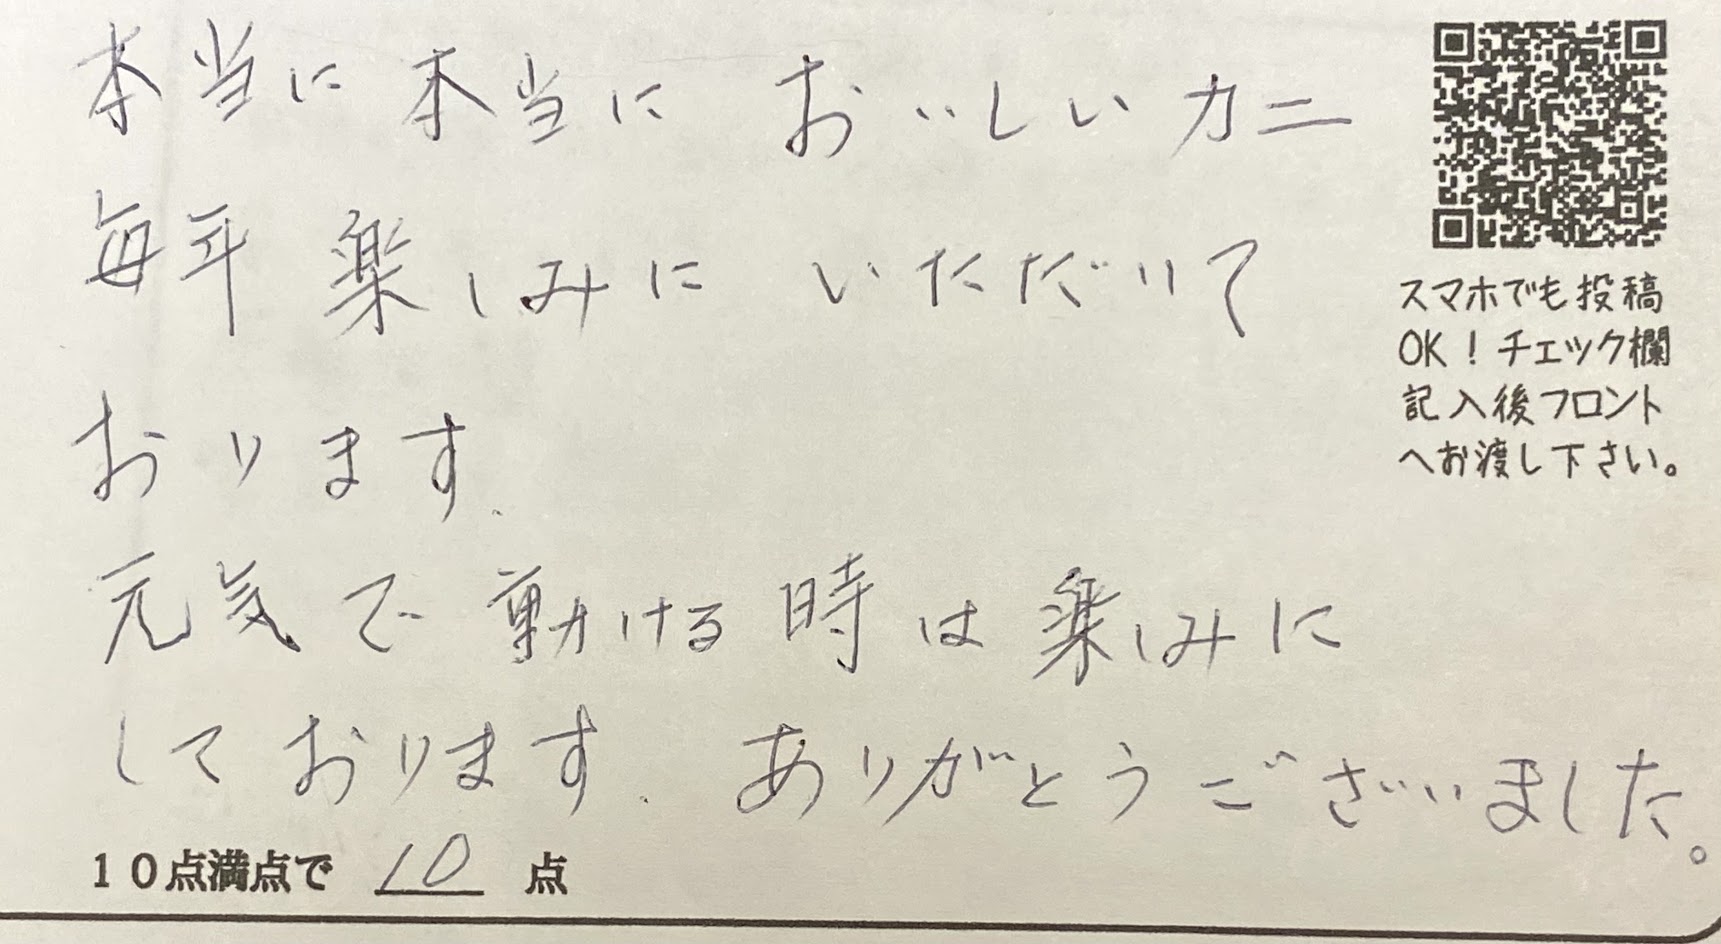 本当に本当に おいしいカニ
毎年 楽しみに いただいて
おります.
元気で動ける時は楽しみに
しております. ありがとうございました。
スマホでも投稿
OK！チェック欄
記入後フロント
へお渡し下さい。
10点満点で 10 点